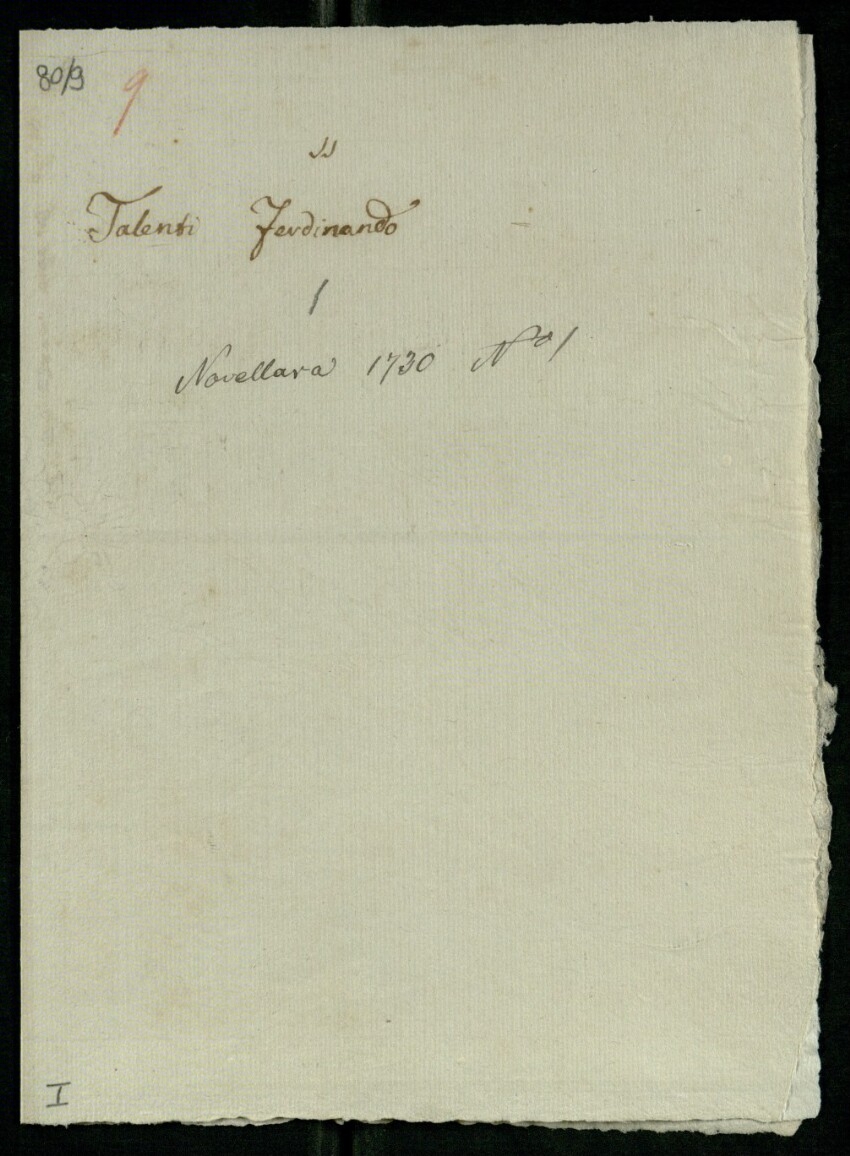 80/9 9
Talenti Ferdinando
1
Novellara 1730 Nº 1
I